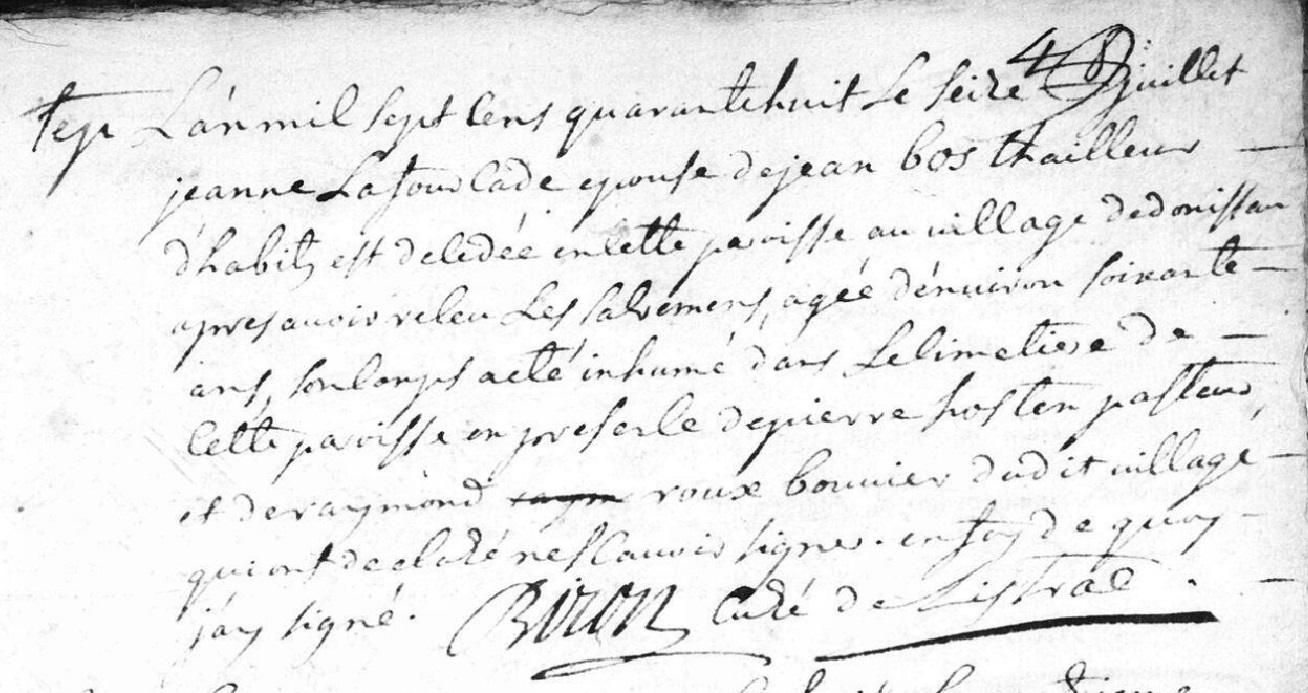 Sep L'an mil sept cens quarante huit Le seize juillet
jeanne Lafourcade epouse de jean bos thailleur
d'habits est decedée en cette paroisse au village de donissan
apres avoir receu Les sacremens, ageé d'enuiron soixante
ans, son corps a eté inhumé dans Le cimetiere de
cette paroisse en presence de pierre hosten pasteur,
et de raymond roux bouuier dudit village
qui ont declaré ne scauoir signer. en foy de quoy
j'ay signé. Biron Curé de Listrac.